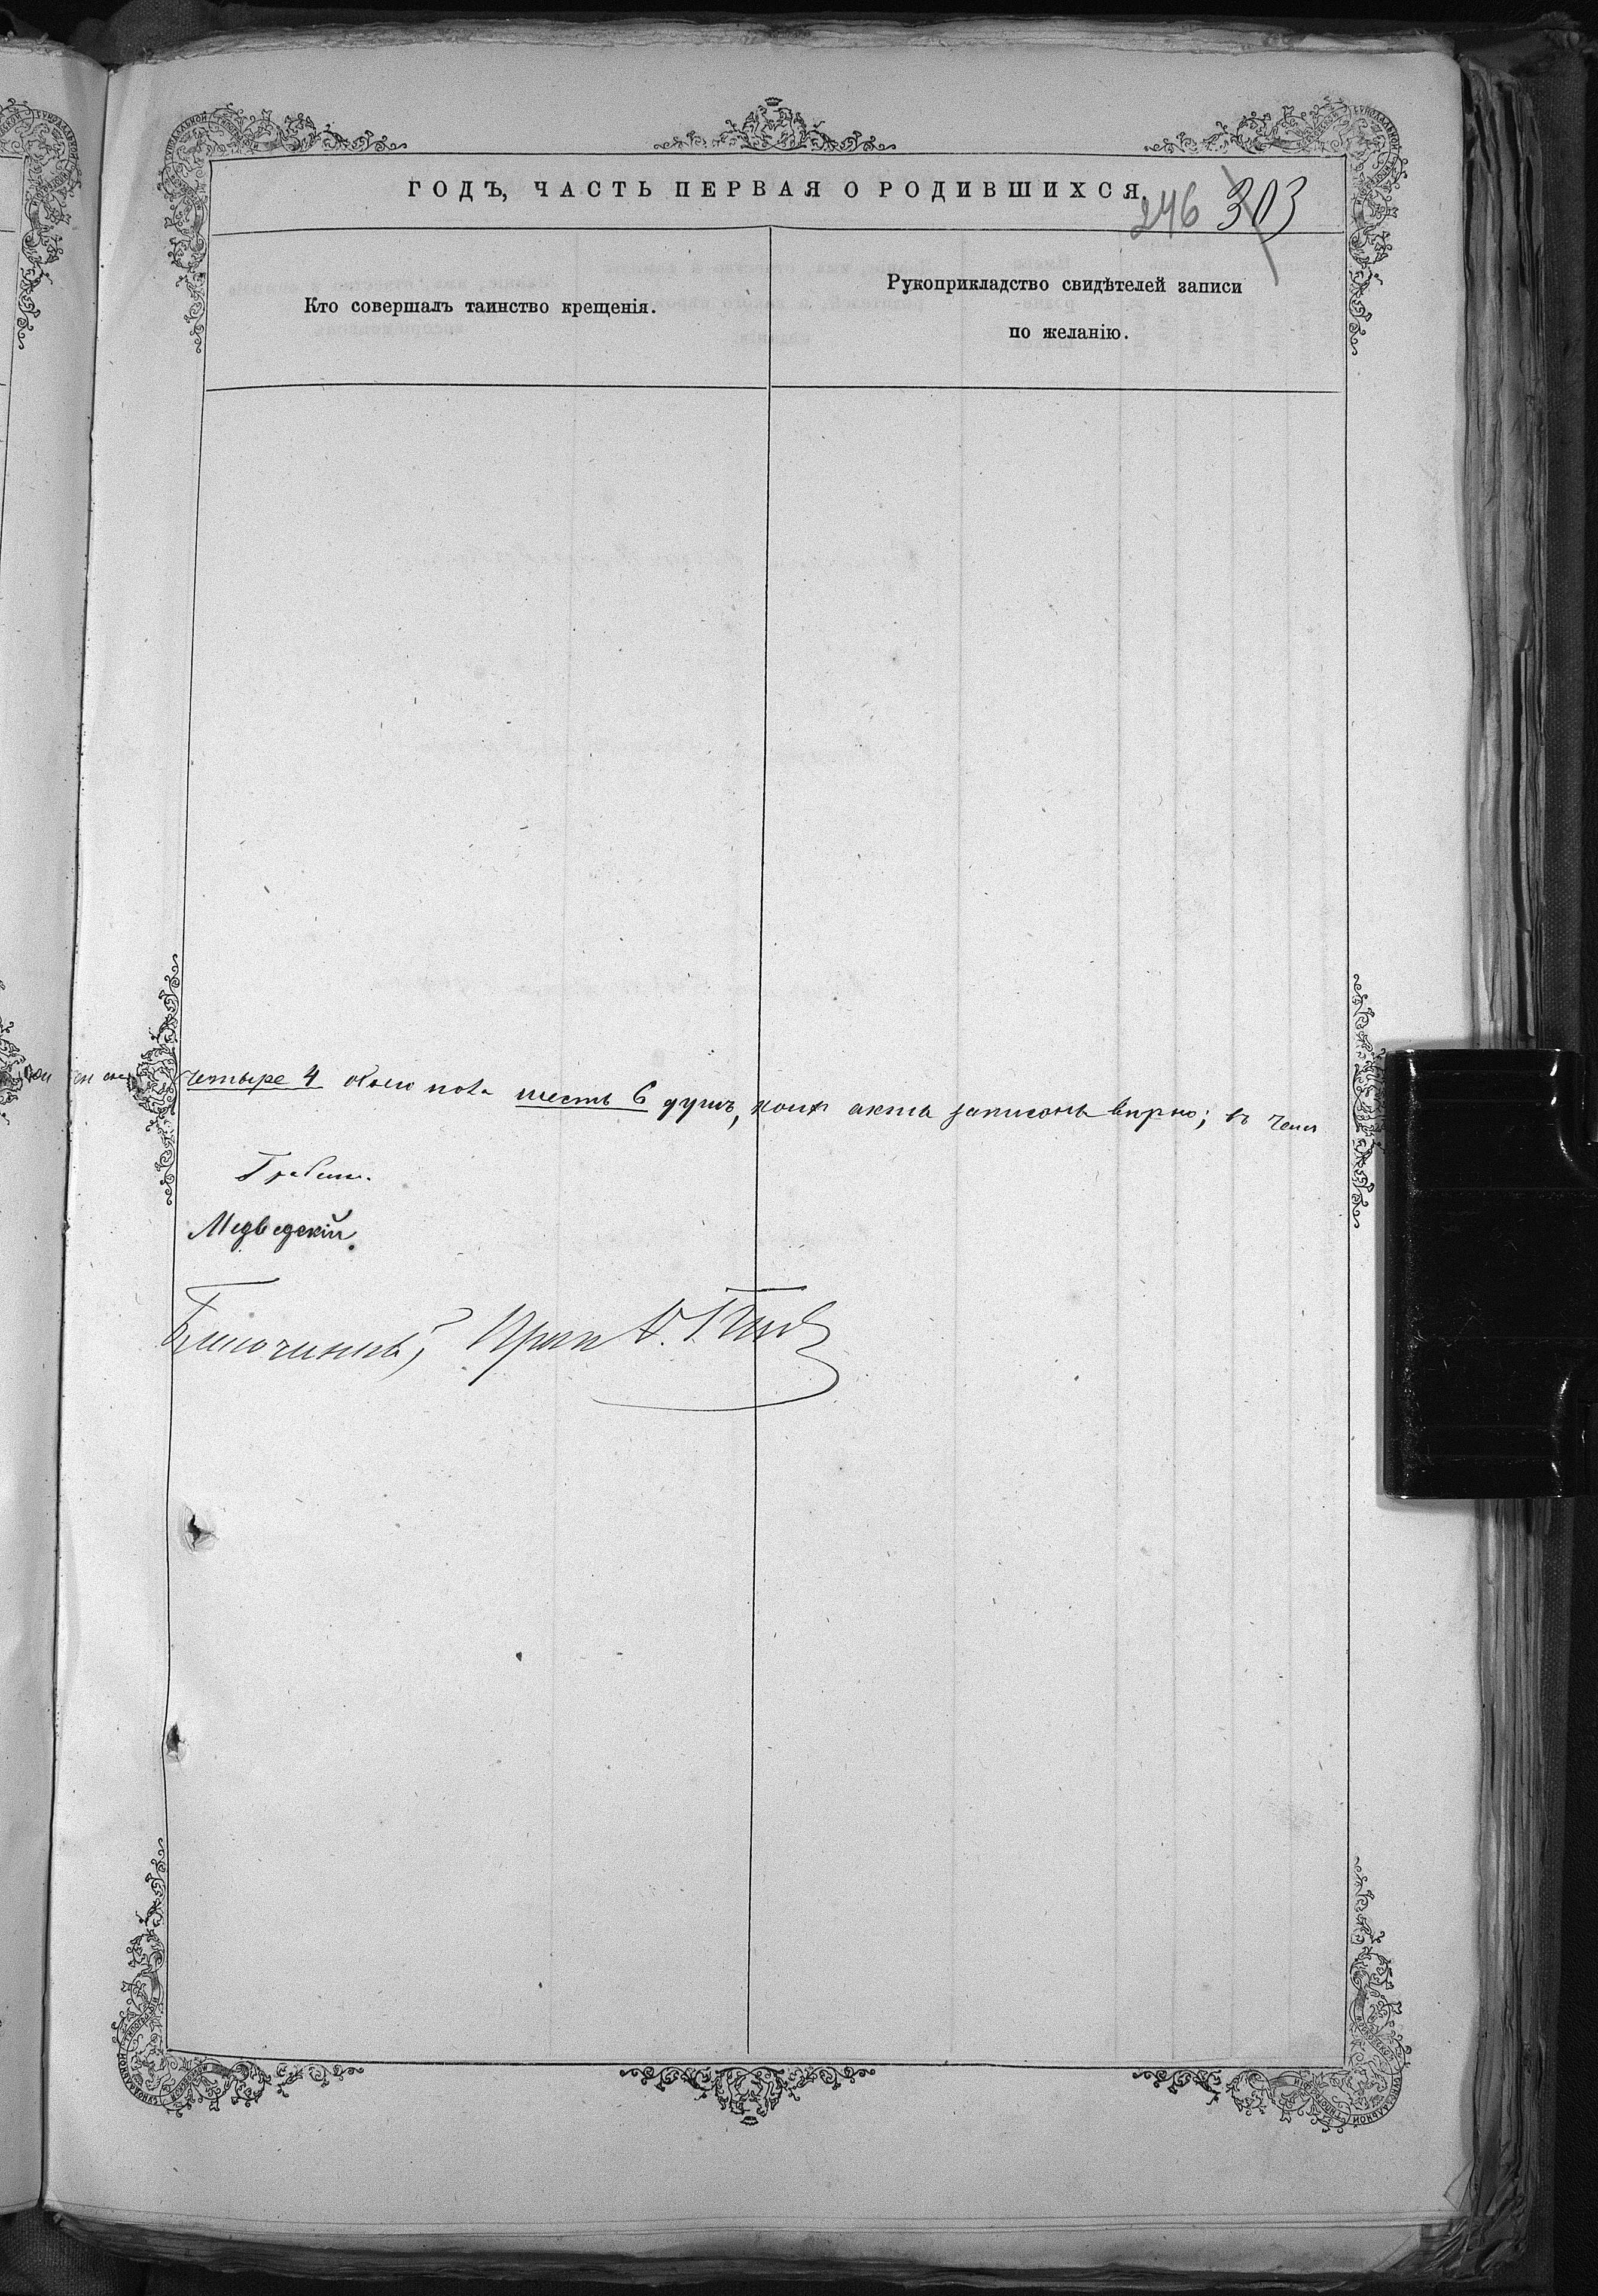 ГОДЪ, ЧАСТЬ ПЕРВАЯ О РОДИВШИХСЯ.
246 303
Кто совершалъ таинство крещенія.
Рукоприкладство свидѣтелей записи
по желанію.
четыре 4 обоего пола шесть 6 душъ, коихъ акты записаны вѣрно; въ чемъ
Медведскій
Благочинный,